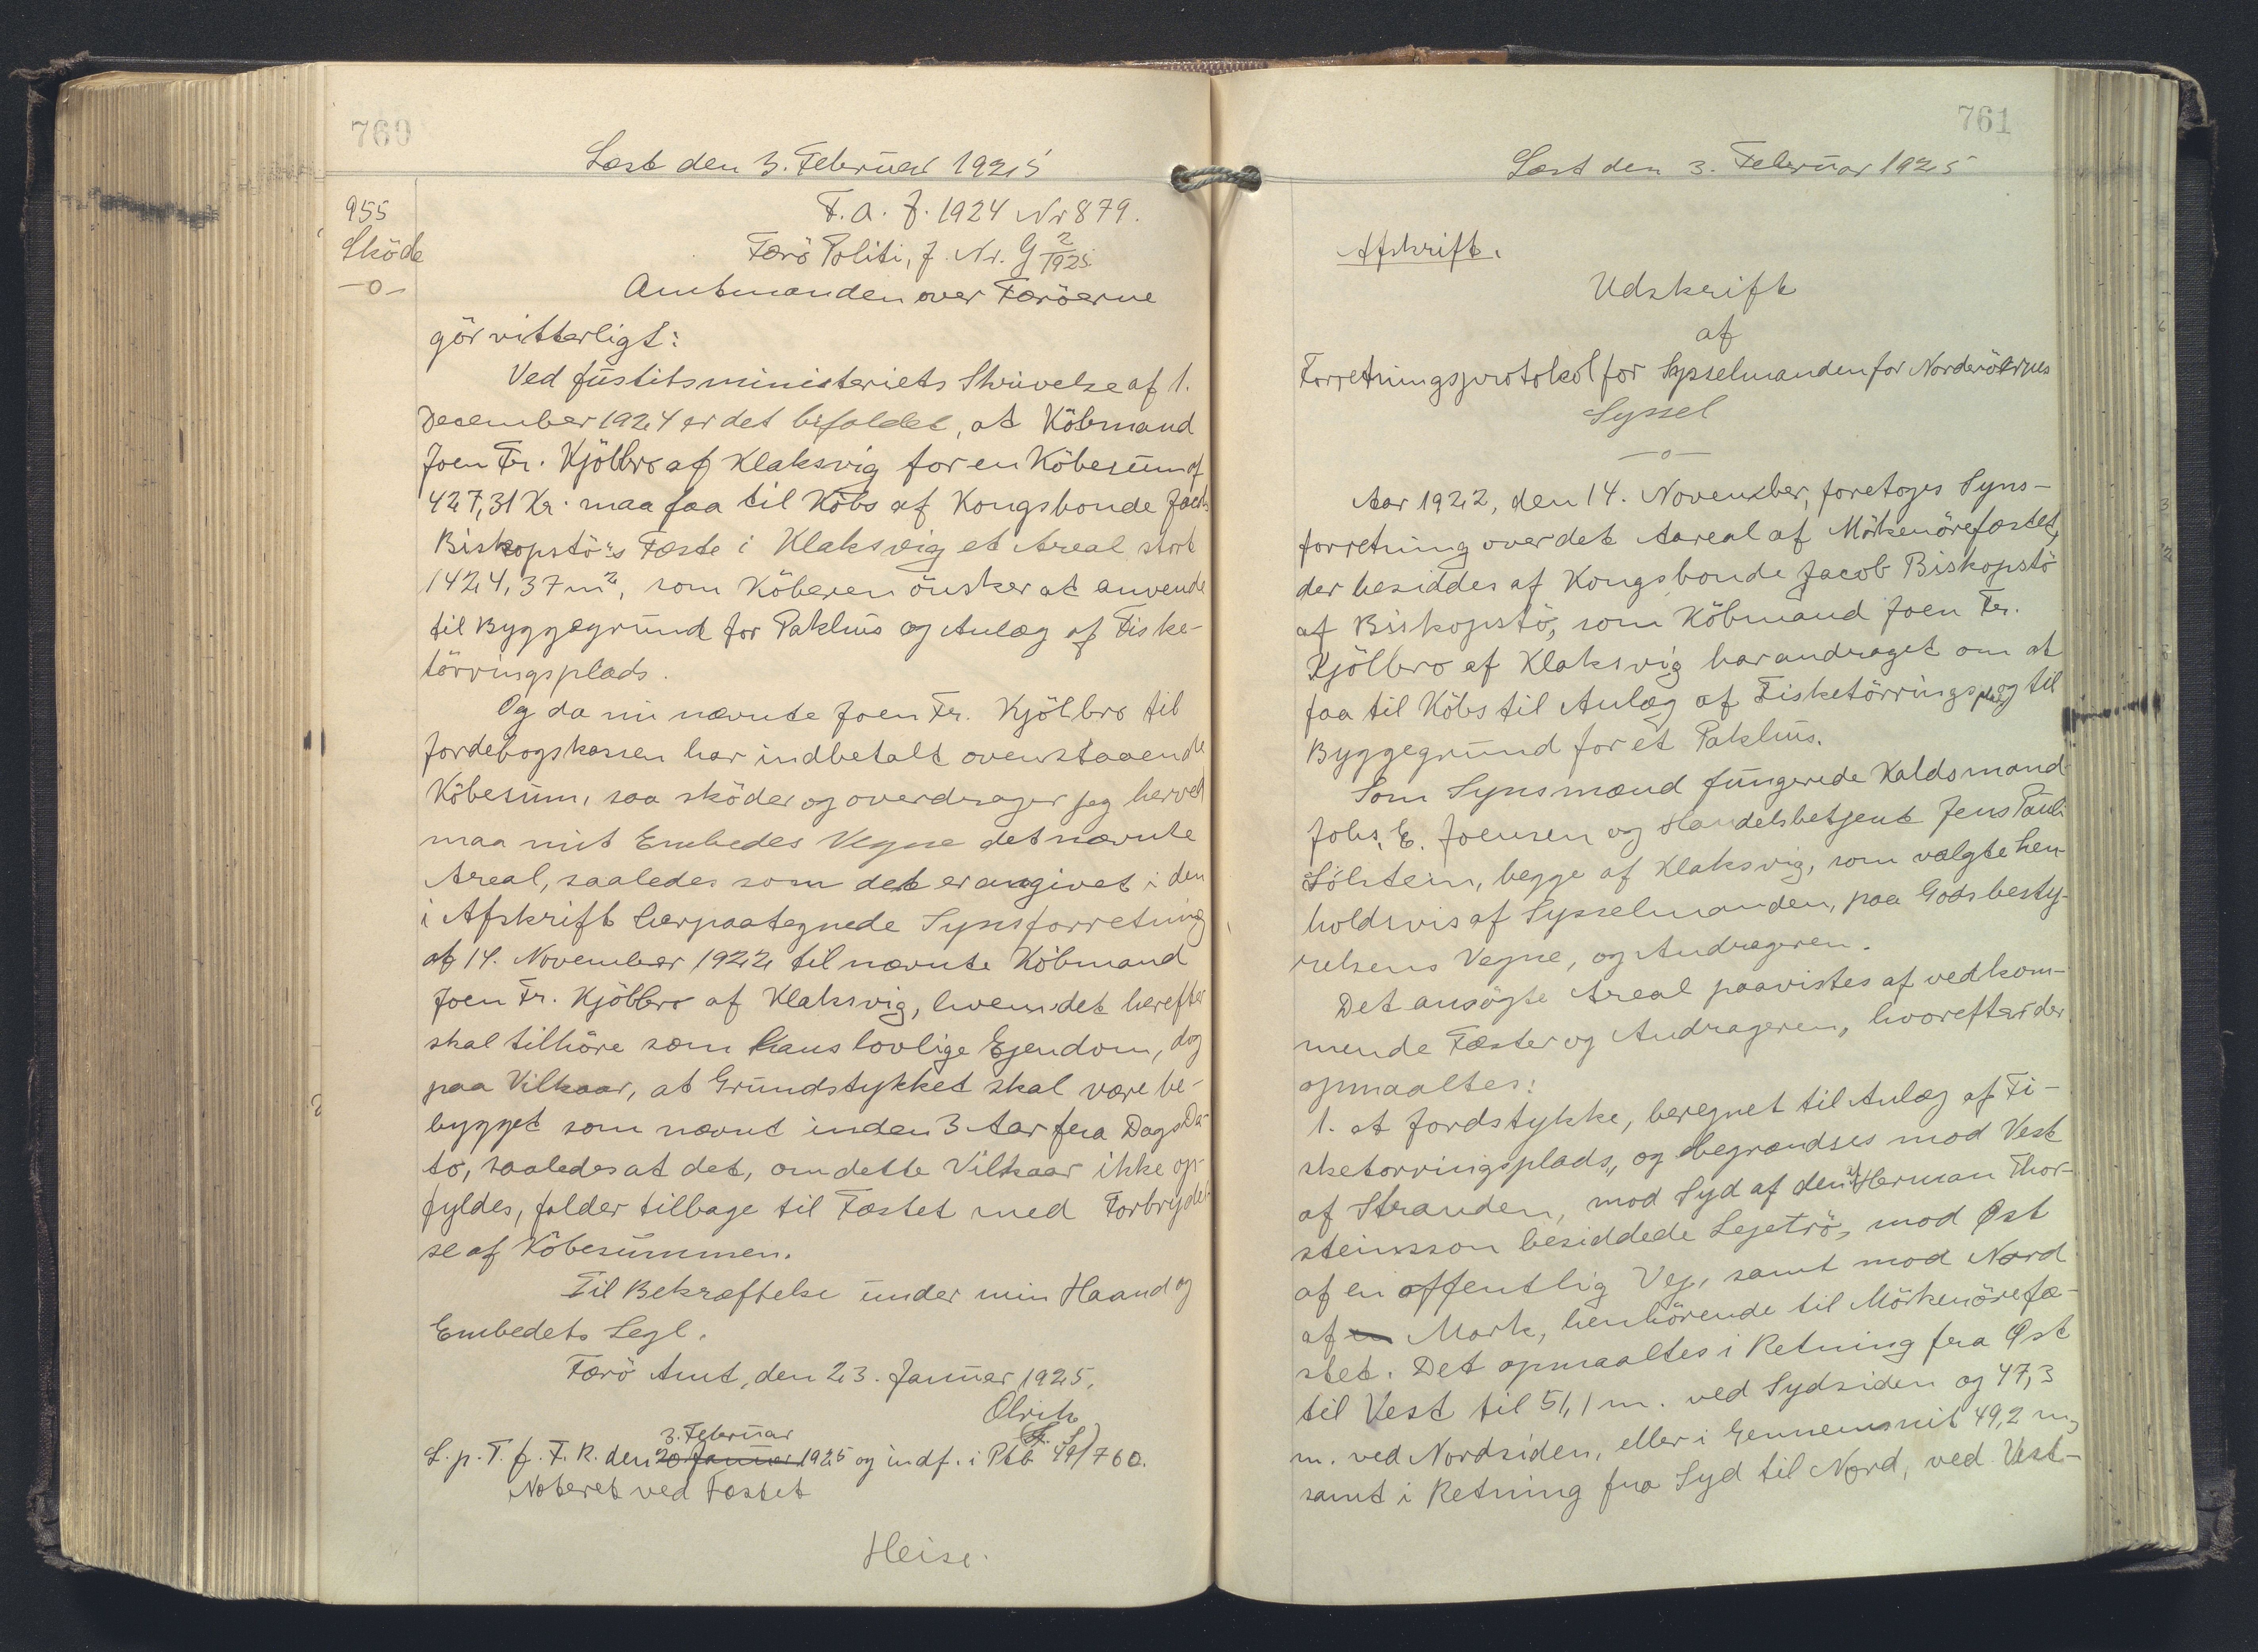 760
Læst den 3. Februar 1925
955
Sköde
-o-
F. A. J. 1924 Nr 879.
Færö Politi, J. Nr. G 2/1925.
Amtmanden over Færöerne
gör vitterligt:
Ved Justitsministeriets Skrivelse af 1.
December 1924 er det bifaldet, at Köbmand
Joen Fr. Kjölbro af Klaksvig for en Köbesum af
427,31 Kr. maa faa til Köbs af Kongsbonde Jacob
Biskopstö's Fæste i Klaksvig et Areal stort
1424,37 m², som Köberen önsker at anvende
til Byggegrund for Pakhus og Anlæg af Fiske-
törringsplads.
Og da nu nævnte Joen Fr. Kjölbro til
Jordebogskassen har indbetalt ovenstaaende
Köbesum, saa sköder og overdrager jeg herved
paa mit Embedes Vegne det nævnte
Areal, saaledes som det er angivet i den
i Afskrift herpaategnede Synsforretning
af 14. November 1922 til nævnte Köbmand
Joen Fr. Kjölbro af Klaksvig, hvem det herefter
skal tilhöre som hans lovlige Ejendom, dog
paa Vilkaar, at Grundstykket skal være be-
bygget som nævnt inden 3 Aar fra Dags Da-
to, saaledes at det, om dette Vilkaar ikke op-
fyldes, falder tilbage til Fæstet med Forbrydel-
se af Köbesummen.
Til Bekræftelse under min Haand og
Embedets Segl.
Færö Amt, den 23. Januar 1925.
Olrik
(L. S.)
3. Februar
L. p. T. f. F. R. den 20 Januar 1925 og indf. i Ptb 49/760.
Noteret ved Fæstet
Heise.
761
Læst den 3. Februar 1925
Afskrift.
Udskrift
af
Forretningsprotokol for Sysselmanden for Norderöernes
Syssel
-o-
Aar 1922, den 14. November, foretoges Syns-
forretning over det Aareal af Mörkenörefæstet,
der besiddes af Kongsbonde Jacob Biskopstö
af Biskopstö, som Köbmand Joen Fr.
Kjölbro af Klaksvig har andraget om at
faa til Köbs til Anlæg af Fisketörringsplads og til
Byggegrund for et Pakhus.
Som Synsmænd fungerede Kaldsmand
Johs. E. Joensen og Handelsbetjent Jens Pauli
Sölstein, begge af Klaksvig, som valgte hen-
holdsvis af Sysselmanden, paa Godsbesty-
relsens Vegne, og Andrageren.
Det ansögte Areal paavistes af vedkom-
mende Fæster og Andrageren, hvorefter der
opmaaltes:
1. et Jordstykke, beregnet til Anlæg af Fi-
sketorringsplads, og begrændses mod Vest
af Stranden, mod Syd af den af Herman Thor-
steinsson besiddede Lejetrö, mod Øst
af en offentlig Vej, samt mod Nord
af en Mark, henhörende til Mörkenörefæ-
stet. Det opmaaltes i Retning fra Øst
til Vest til 51,1 m. ved Sydsiden og 47,3
m. ved Nordsiden, eller i Gennemsnit 49,2 m,
samt i Retning fra Syd til Nord, ved Vest-